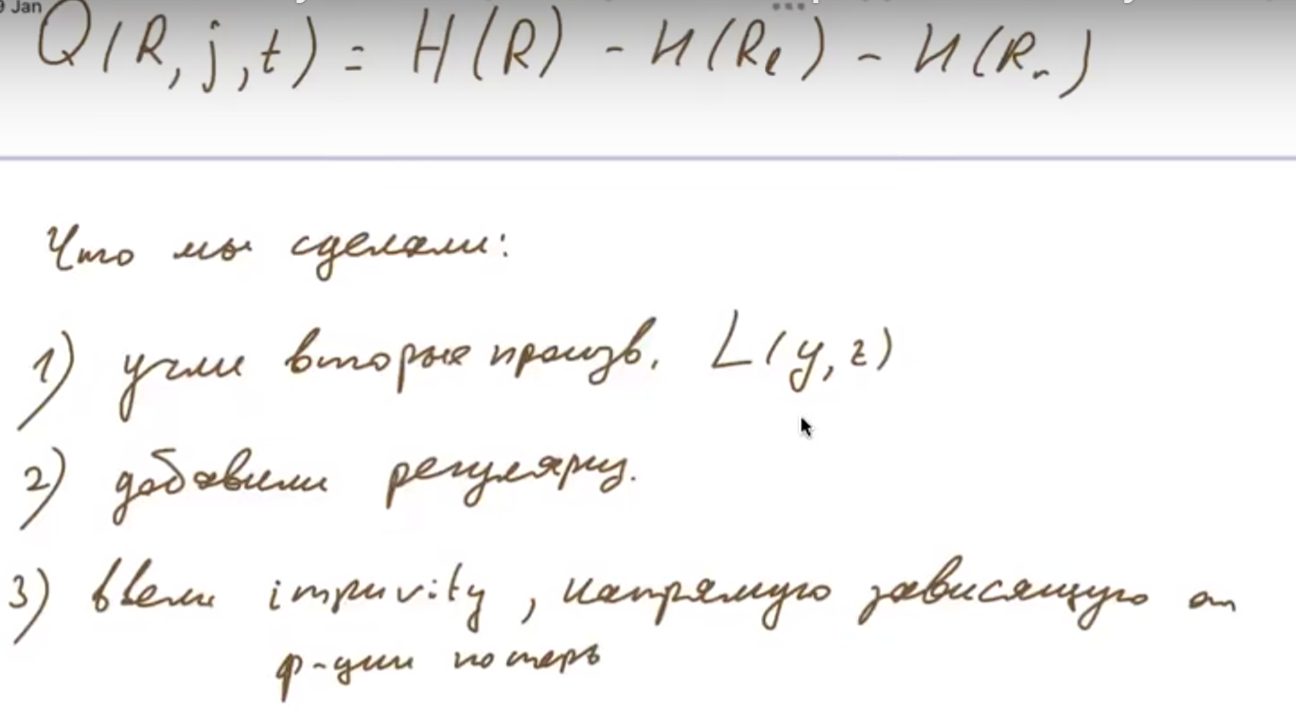 9 Jan
Q(R, j, t) = H(R) - H(Rₑ) - H(Rᵣ)
Что мы сделали:
1) учли вторые произв. L(y, z)
2) добавили регуляриз.
3) ввели impurity, напрямую зависящую от
ф-ции потерь